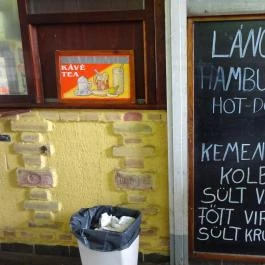 KÁVÉ
TEA
LÁNG
HAMBU
HOT-DO
KEMEN
KOLB
SÜLT V
FŐTT VIR
SÜLT KR